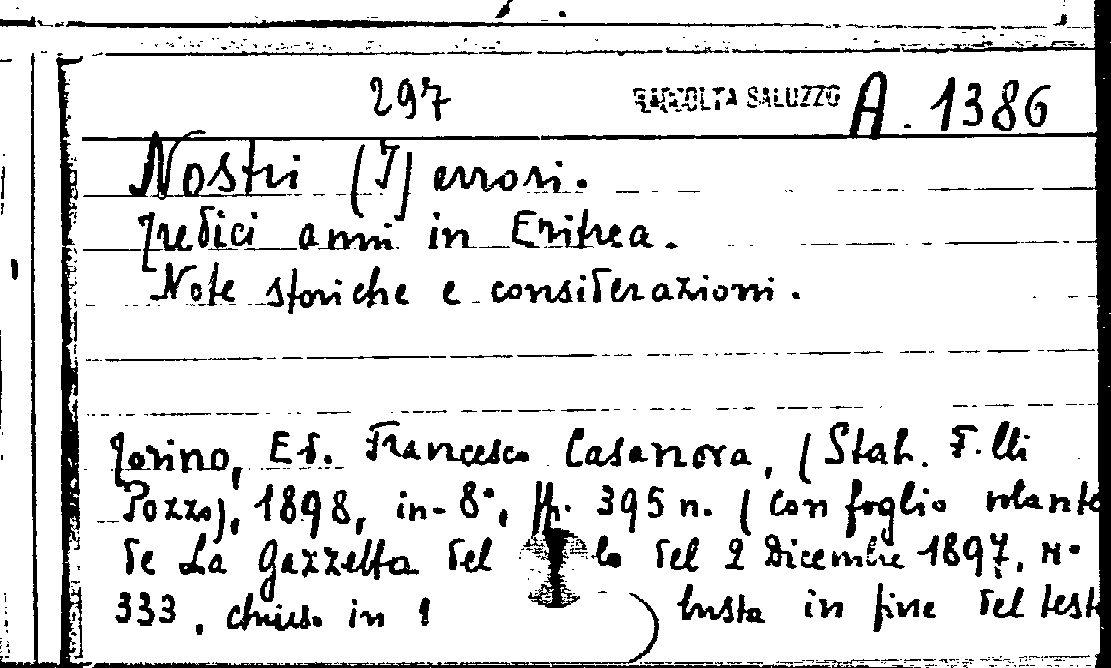 297 RACCOLTA SALUZZO A. 1386
Nostri (I) errori.
Tredici anni in Eritrea.
Note storiche e considerazioni.
Torino, Ed. Francesco Casanova, (Stab. F.lli
Pozzo), 1898, in-8°, pp. 395 n. (con foglio volante
de La Gazzetta del lo del 2 Dicembre 1897, N°
333, chiuso in 1 busta in fine del test